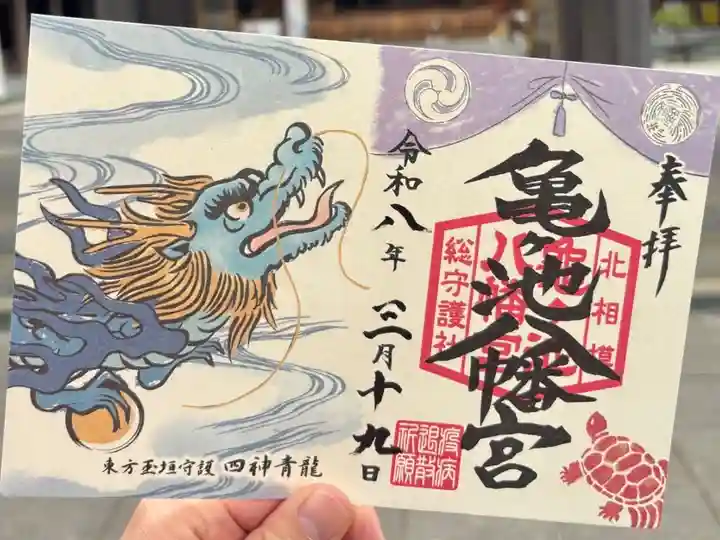 奉拝
亀ヶ池八幡宮
北相模
亀ヶ池
八幡宮
総守護社
令和八年
三月十九日
疫病
退散
祈願
東方玉垣守護 四神青龍